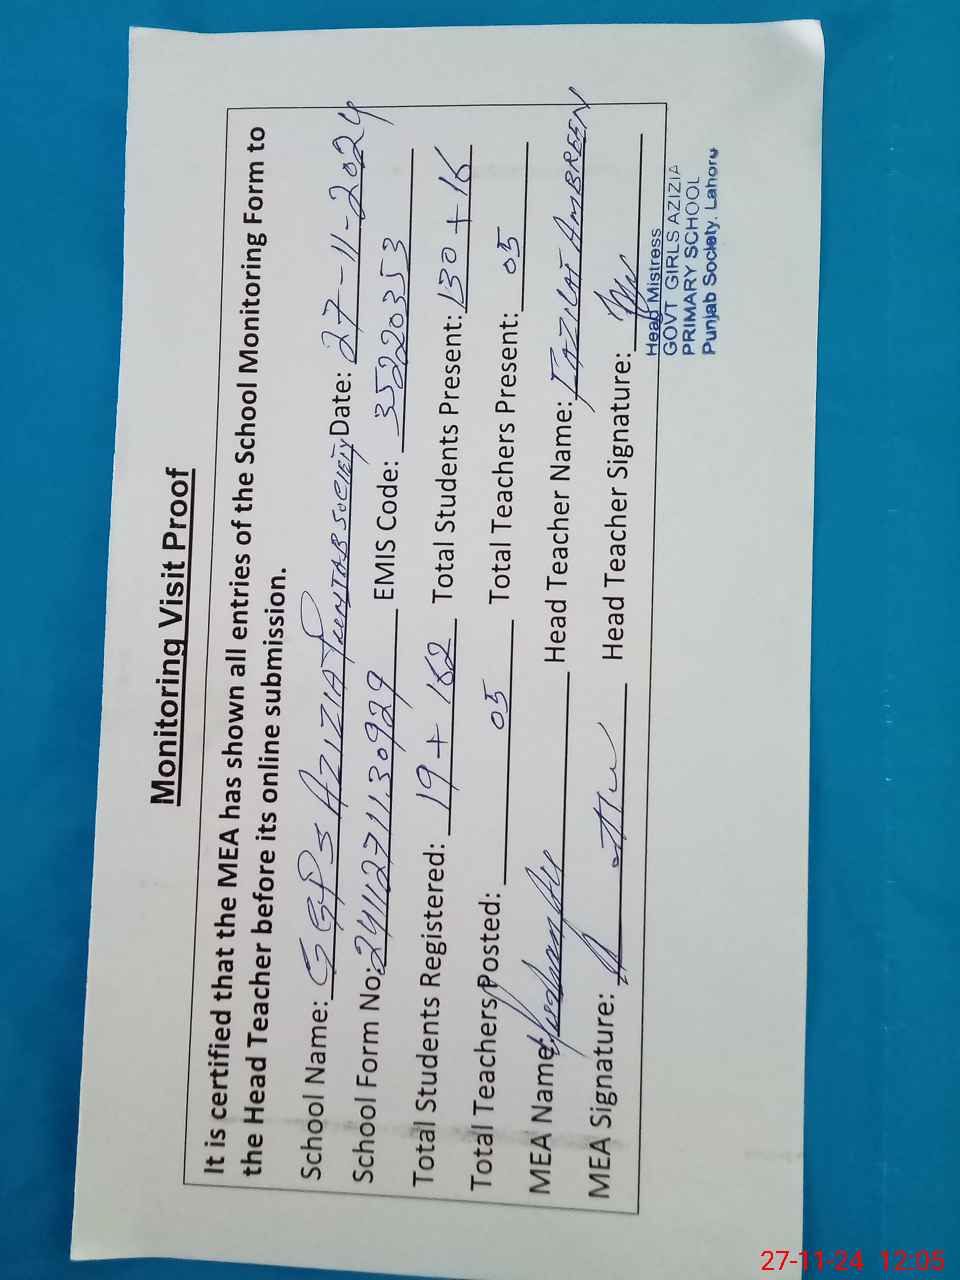 Monitoring Visit Proof
It is certified that the MEA has shown all entries of the School Monitoring Form to
the Head Teacher before its online submission.
School Name: GGPS AZIZIA PUNJAB SOCIETY Date: 27-11-2024
School Form No: 241127113092 EMIS Code: 35220353
Total Students Registered: 19 + 162 Total Students Present: 130 + 16
Total Teachers Posted: 05 Total Teachers Present: 05
MEA Name: Head Teacher Name: FAZILAT AMBREEN
MEA Signature: Head Teacher Signature:
Head Mistress
GOVT GIRLS AZIZIA
PRIMARY SCHOOL
Punjab Society, Lahore
27-11-24 12:05